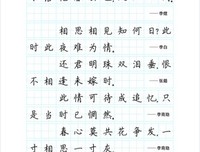 —李煜
相思相见知何日?此
时此夜难为情。
—李白
还君明珠双泪垂,恨
不相逢未嫁时。
—张籍
此情可待成追忆,只
是当时已惘然。
—李商隐
春心莫共花争发,一
寸相思一寸灰。